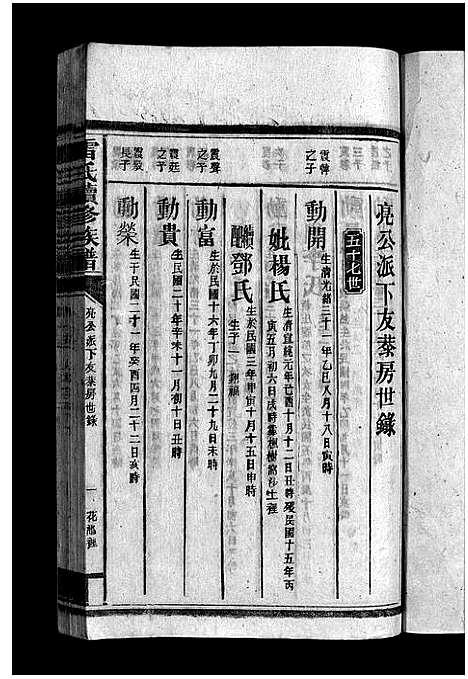 亮公派下友蔾房世錄
五十七世
震聲之子
動開
生清光緒三十一年乙巳八月十八日寅時
妣楊氏
生清宣統元年己酉十月十二日丑時歿民國十五年丙
寅五月初六日戌時葬
動富
生於民國十六年丁卯九月二十九日未時
鄧氏
生於民國三年甲寅十月十五日申時
生子二
震聲之子
動貴
生民國二十年辛未十一月初十日丑時
震廷之子
動榮
生于民國二十一年癸酉四月二十二日亥時
震毅長子
雷氏續修族譜
亮公派下友蔾房世錄
一